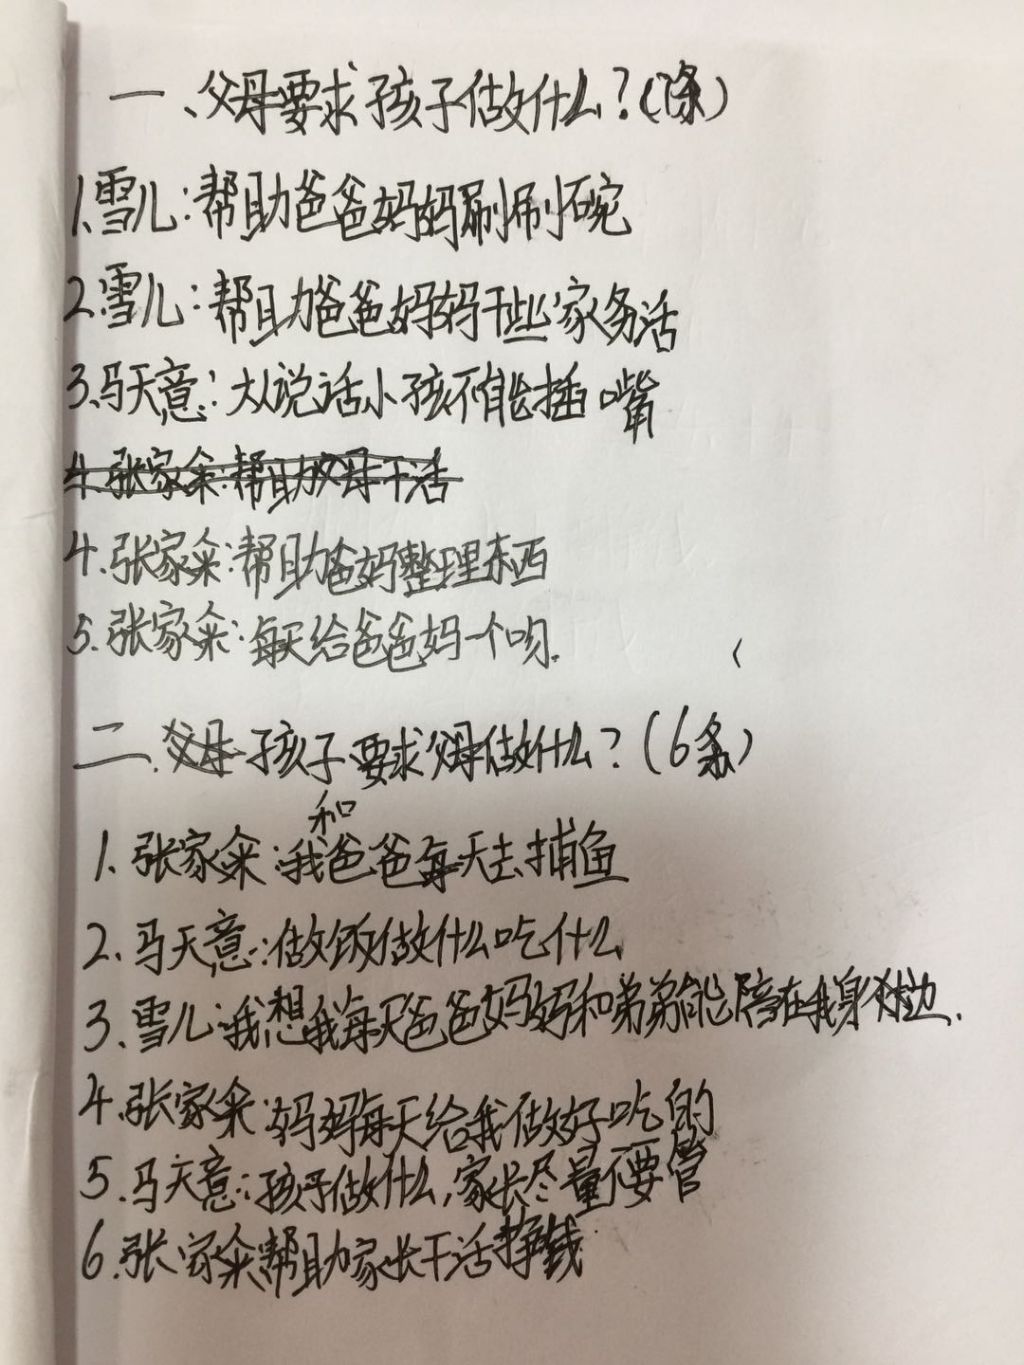 一、父母要求孩子做什么?(条)
1.雪儿:帮助爸爸妈妈刷刷碗
2.雪儿:帮助爸爸妈妈干些家务活
3.马天意:大人说话小孩不能插嘴
4.张家籴:帮助父母干活
4.张家籴:帮助爸妈整理东西
5.张家籴:每天给爸爸妈一个吻.
二.父母孩子要求父母做什么?(6条)
和
1.张家籴:我爸爸每天去捕鱼
2.马天意:做饭做什么吃什么
3.雪儿:我想我每天爸爸妈妈和弟弟能陪在我身边.
4.张家籴:妈妈每天给我做好吃的
5.马天意:孩子做什么,家长尽量不要管
6.张家籴帮助家长干活挣钱